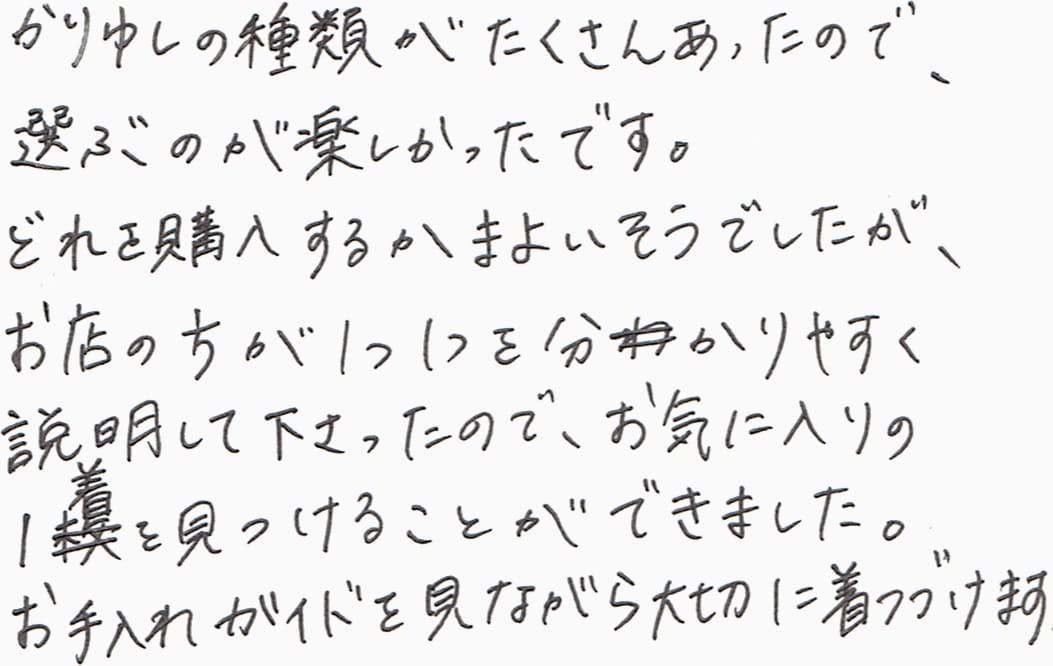 かりゆしの種類がたくさんあったので、
選ぶのが楽しかったです。
どれを購入するかまよいそうでしたが、
お店の方が1つ1つを分かりやすく
説明して下さったので、お気に入りの
1着を見つけることができました。
お手入れガイドを見ながら大切に着つづけます